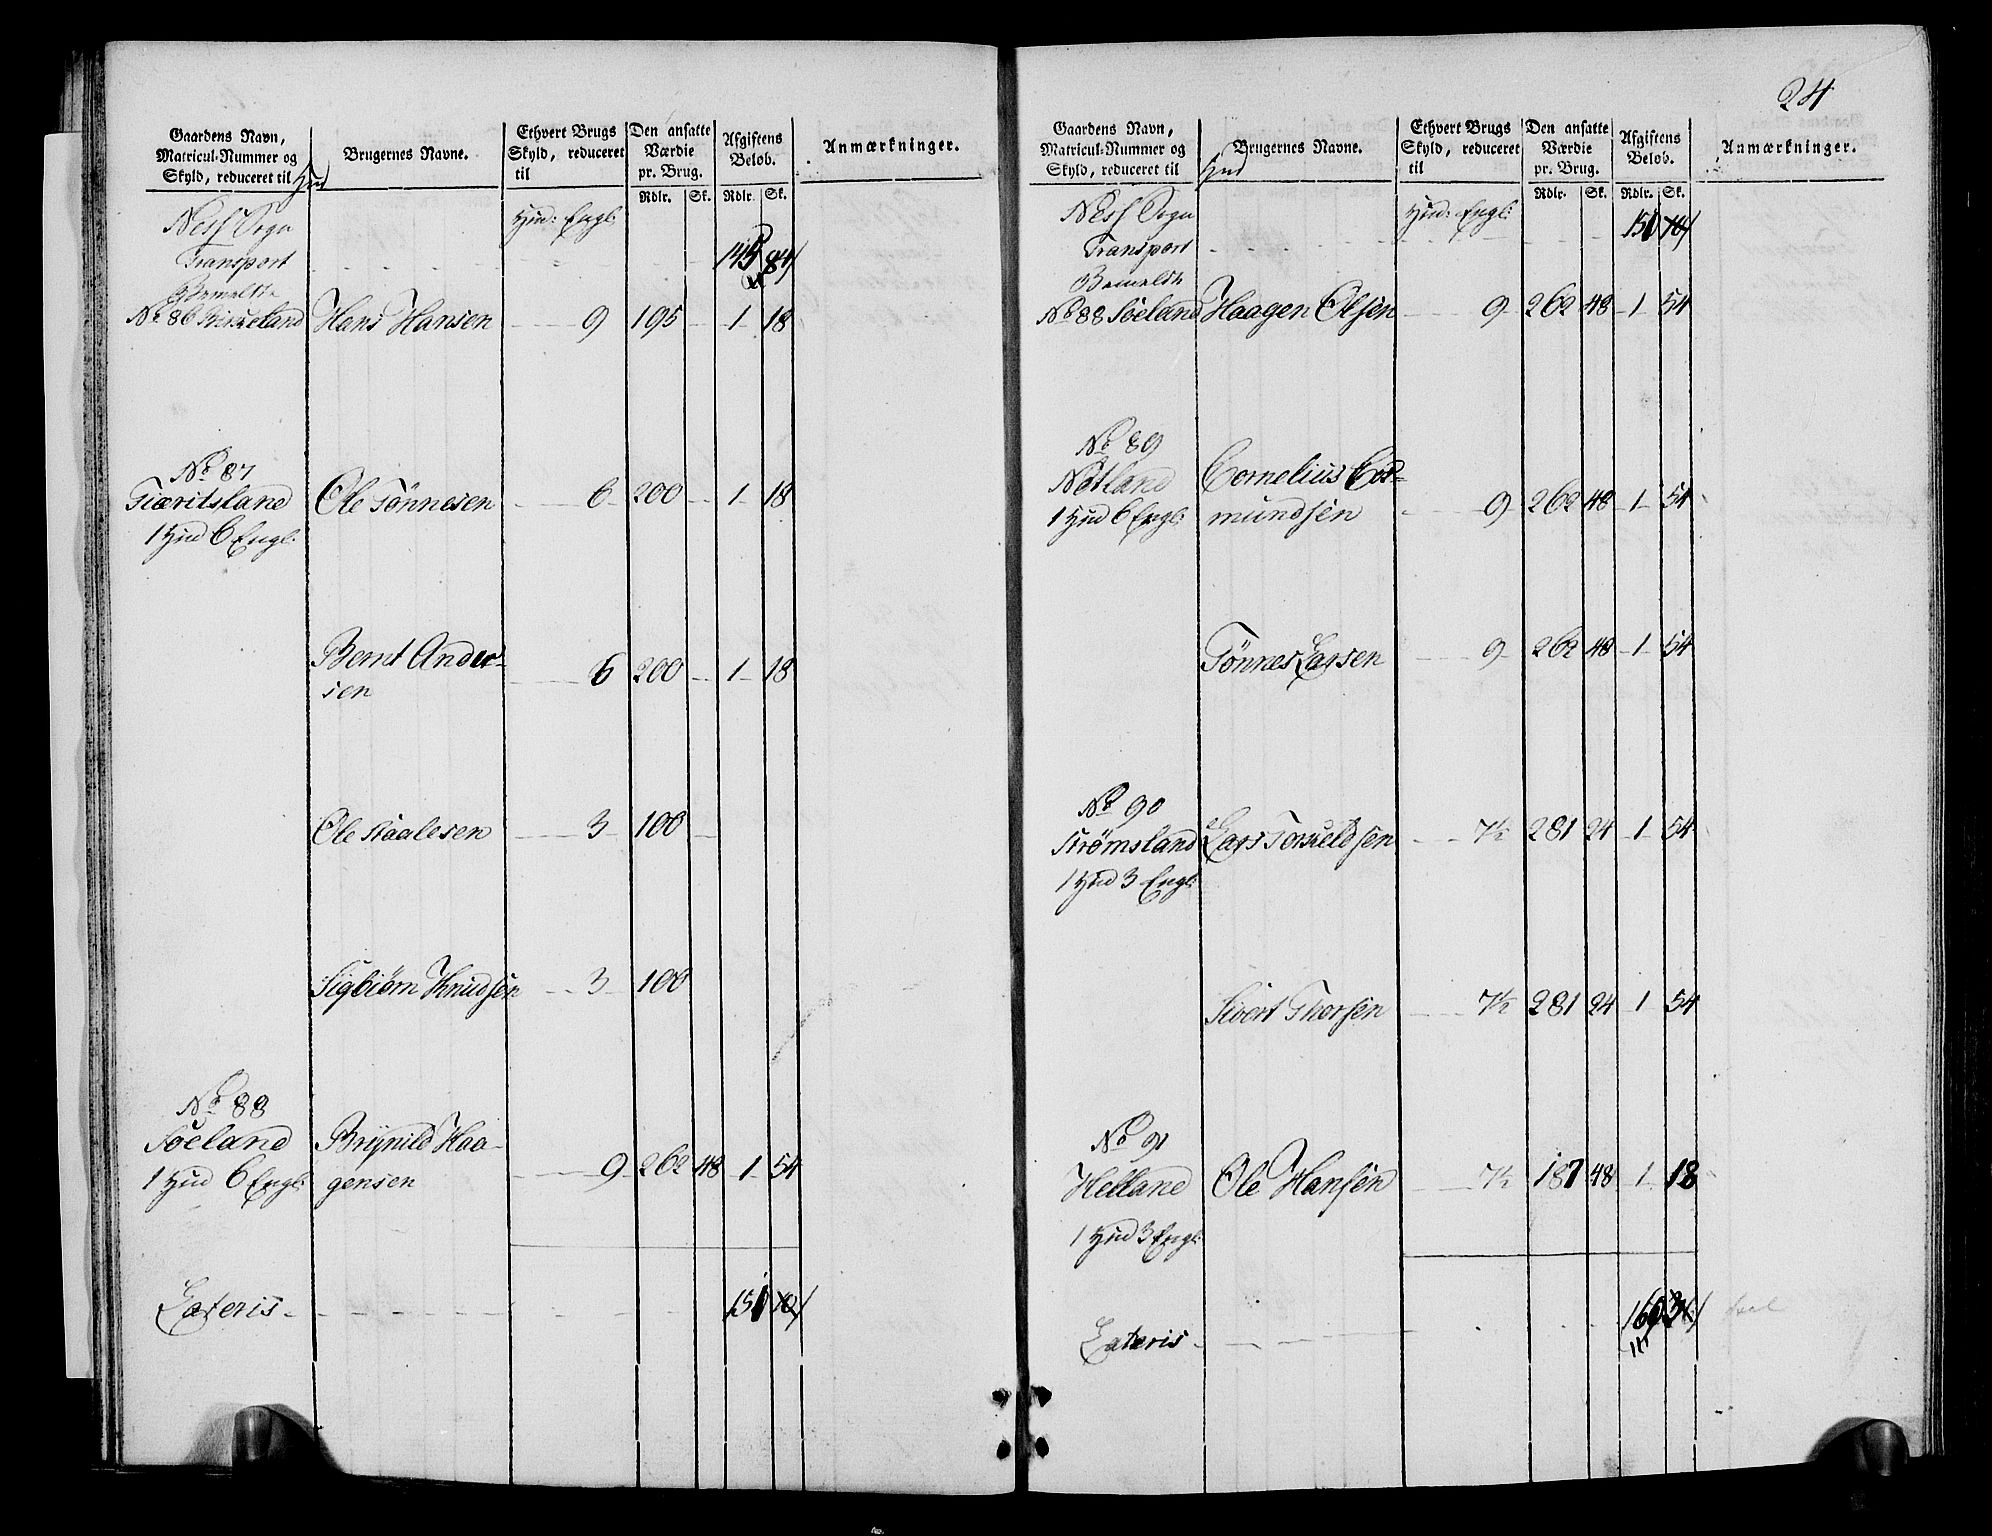 24
Gaardens Navn,
Matricul-Nummer og
Skyld, reduceret til Hud
Brugernes Navne.
Ethvert Brugs
Skyld, reduceret
til
Den ansatte
Værdie
pr. Brug.
Rdlr. Sk.
Afgiftens
Beløb.
Rdlr. Sk.
Anmærkninger.
Ness Sogn
Hud: Engl:
Transport 84
Bemeldte
No 86 Birkeland Hans Hansen 9 195 1 18
No 87
Tiæritsland Ole Tönnesen 6 200 1 18
1 Hud 6 Engl:
Bernt Ander-
sen 6 200 1 18
Ole Aaalesen 3 100
Sigbiørn Knudsen 3 100
No 88
Søeland Brynild Haa-
1 Hud 6 Engl: gensen 9 262 48 1 54
Lateris 151
Gaardens Navn,
Matricul-Nummer og
Skyld, reduceret til Hud
Brugernes Navne.
Ethvert Brugs
Skyld, reduceret
til
Den ansatte
Værdie
pr. Brug.
Rdlr. Sk.
Afgiftens
Beløb.
Rdlr. Sk.
Anmærkninger.
Ness Sogn
Hud: Engl:
Transport 151
Bemeldte
No 88 Søeland Haagen Olsen 9 262 48 1 54
No 89
Nötland Cornelius Cos-
1 Hud 6 Engl: mundsen 9 262 48 1 54
Tönnes Larsen 9 262 48 1 54
No 90
Strømsland Lars Torkeldsen 7½ 281 24 1 54
1 Hud 3 Engl:
Sivert Thorsen 7½ 281 24 1 54
No 91
Helland Ole Hansen 7½ 187 48 1 18
1 Hud 3 Engl:
Lateris